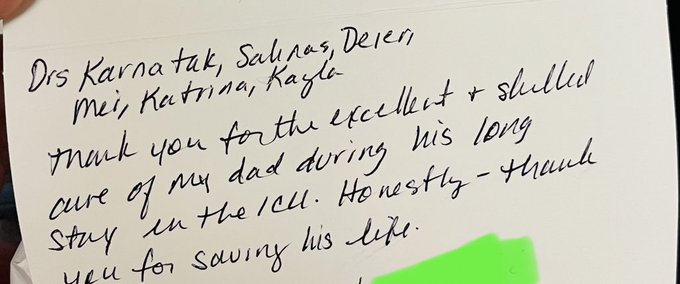 Drs Karnatak, Salinas, Deier,
Mei, Katrina, Kayla
Thank you for the excellent + skilled
care of my dad during his long
stay in the ICU. Honestly - thank
you for saving his life.